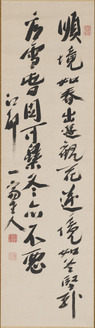 順境如春出遊觀花逆境如冬堅臥
看雪春固可樂冬亦不惡
一齋老人